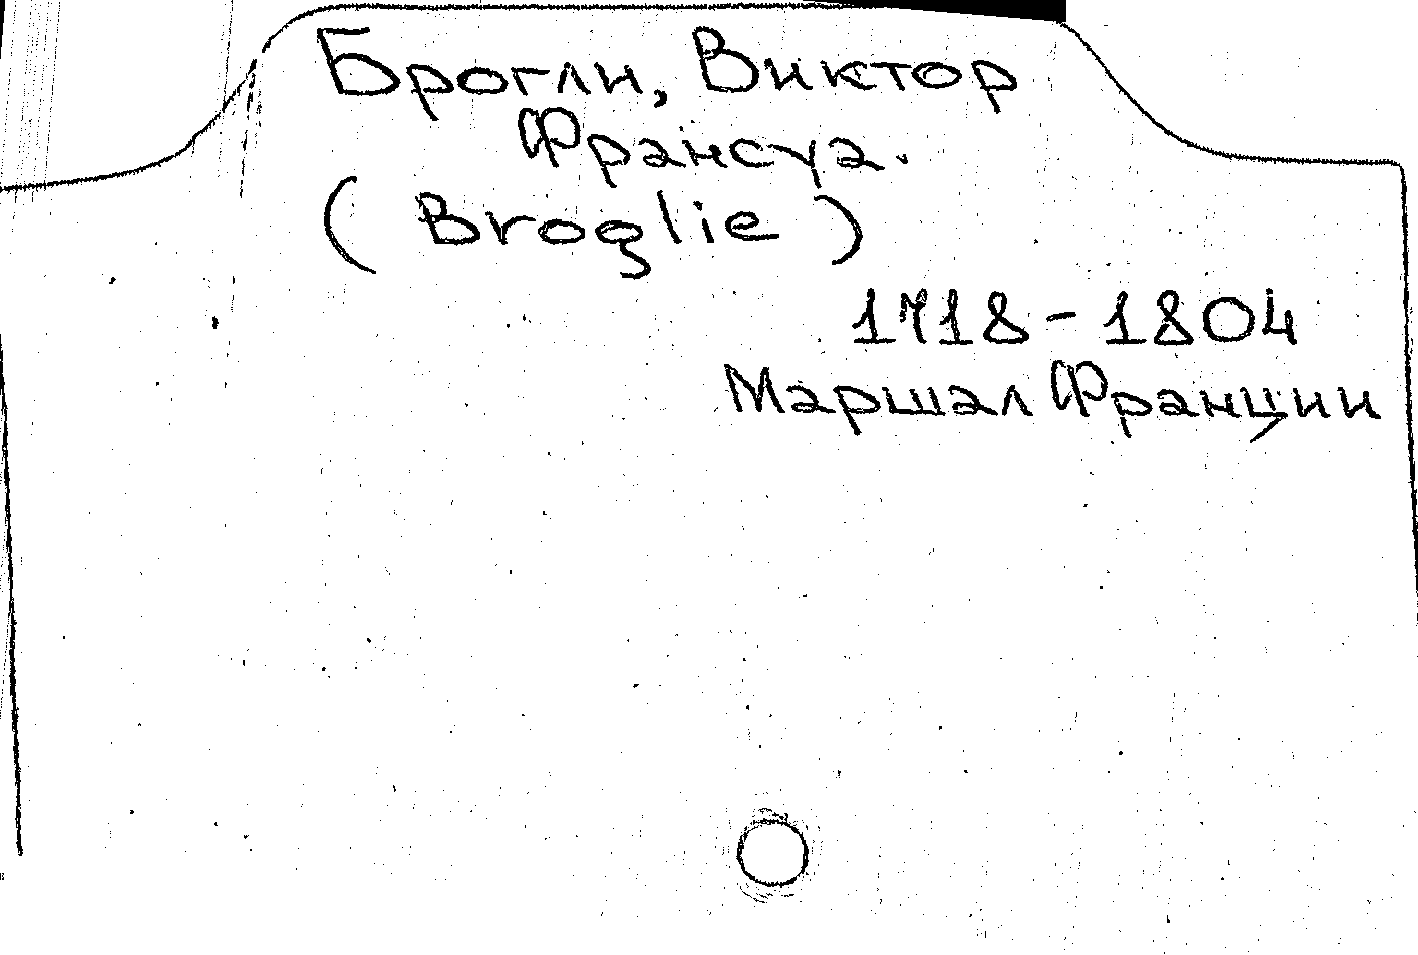 Брогли, Виктор
Франсуа.
(Broglie)
1718 - 1804
Маршал Франции